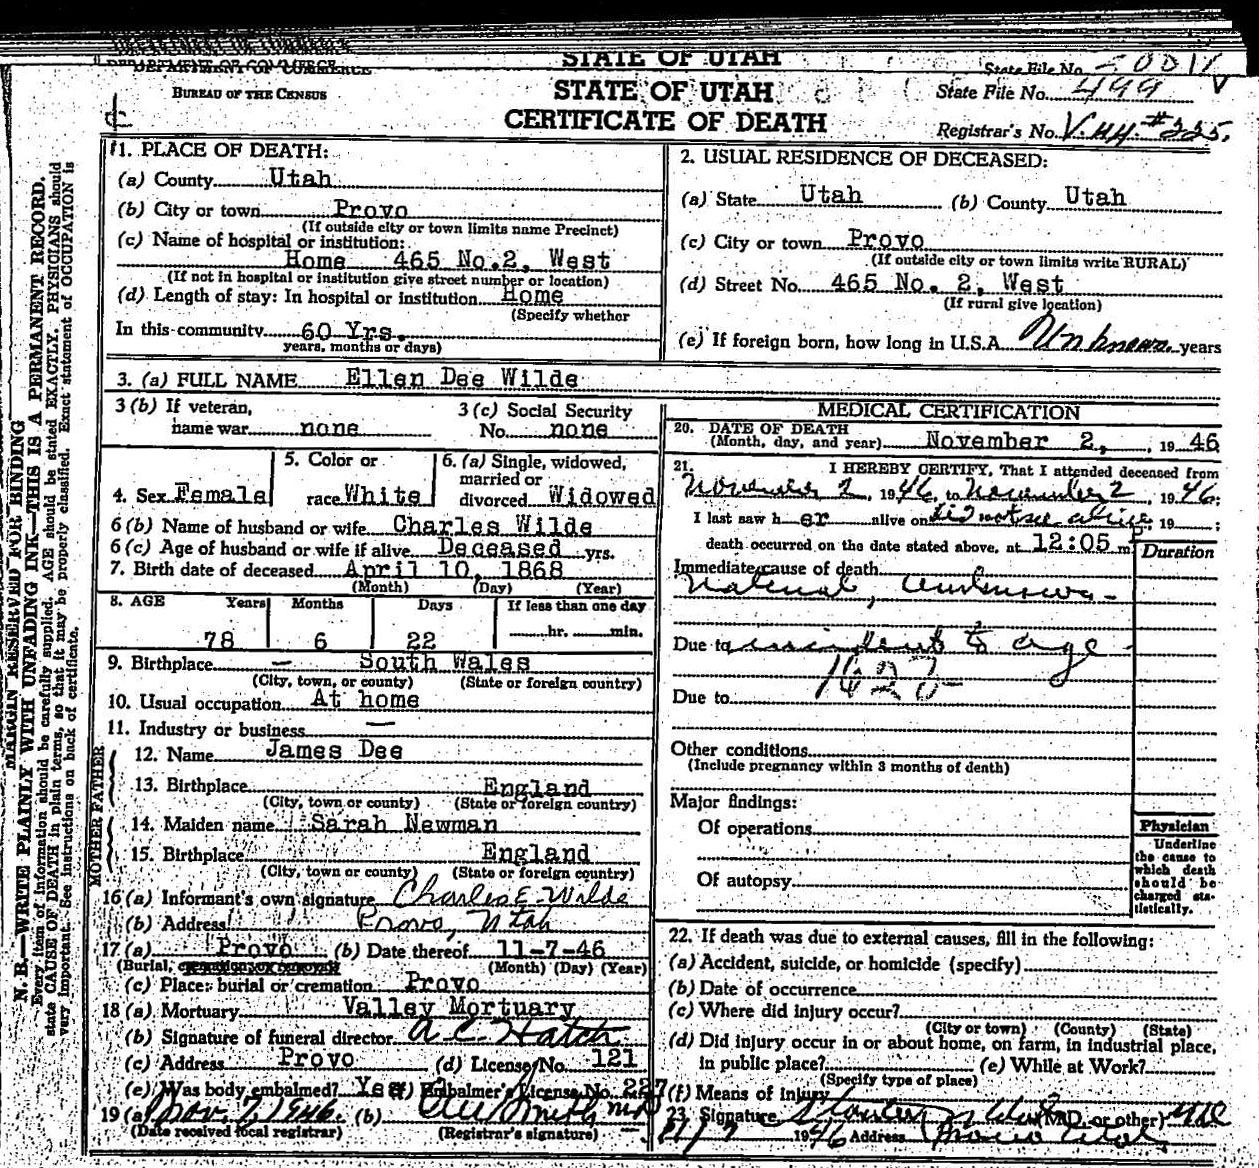 DEPARTMENT OF COMMERCE
STATE OF UTAH
State File No.
DEPARTMENT OF COMMERCE
BUREAU OF THE CENSUS
STATE OF UTAH
State File No. 499
CERTIFICATE OF DEATH
Registrar's No. #225.
1. PLACE OF DEATH:
(a) County Utah
(b) City or town Provo
(If outside city or town limits name Precinct)
(c) Name of hospital or institution:
Home 465 No.2, West
(If not in hospital or institution give street number or location)
(d) Length of stay: In hospital or institution Home
(Specify whether
In this community 60 Yrs.
years, months or days)
2. USUAL RESIDENCE OF DECEASED:
(a) State Utah (b) County Utah
(c) City or town Provo
(If outside city or town limits write RURAL)
(d) Street No. 465 No. 2, West
(If rural give location)
(e) If foreign born, how long in U.S.A. Unknown years
3. (a) FULL NAME Ellen Dee Wilde
3 (b) If veteran, name war none
3 (c) Social Security No. none
4. Sex Female
5. Color or race White
6. (a) Single, widowed, married or divorced Widowed
6 (b) Name of husband or wife Charles Wilde
6 (c) Age of husband or wife if alive Deceased yrs.
7. Birth date of deceased April 10, 1868
(Month) (Day) (Year)
8. AGE Years Months Days If less than one day
78 6 22 hr. min.
9. Birthplace — South Wales
(City, town, or county) (State or foreign country)
10. Usual occupation At home
11. Industry or business —
FATHER
12. Name James Dee
13. Birthplace England
(City, town or county) (State or foreign country)
MOTHER
14. Maiden name Sarah Newman
15. Birthplace England
(City, town or county) (State or foreign country)
16 (a) Informant's own signature Charles E. Wilde
(b) Address Provo, Utah
17 (a) Provo (b) Date thereof 11-7-46
(Burial, cremation or removal) (Month) (Day) (Year)
(c) Place: burial or cremation Provo
18 (a) Mortuary Valley Mortuary
(b) Signature of funeral director A. C. Hatch
(c) Address Provo (d) License No. 121
(e) Was body embalmed? Yes (f) Embalmer's License No. 227
19 (a) Nov. 7, 1946. (b) Smith, M.D.
(Date received local registrar) (Registrar's signature)
MEDICAL CERTIFICATION
20. DATE OF DEATH
(Month, day, and year) November 2, 19 46
21. I HEREBY CERTIFY, That I attended deceased from
November 2, 1946, to November 2, 1946;
I last saw her alive on did not see alive; 19 ;
death occurred on the date stated above, at 12:05 P m.
Duration
Immediate cause of death
Natural, Unknown -
Due to incident to age
Due to
Other conditions
(Include pregnancy within 3 months of death)
Major findings:
Of operations
Of autopsy
Physician
Underline
the cause to
which death
should be
charged sta-
tistically.
22. If death was due to external causes, fill in the following:
(a) Accident, suicide, or homicide (specify)
(b) Date of occurrence
(c) Where did injury occur?
(City or town) (County) (State)
(d) Did injury occur in or about home, on farm, in industrial place,
in public place? (e) While at Work?
(Specify type of place)
(f) Means of injury
23. Signature (M.D. or other) MD
11/7 1946 Address Provo Utah
MARGIN RESERVED FOR BINDING
N. B.—WRITE PLAINLY WITH UNFADING INK—THIS IS A PERMANENT RECORD.
Every item of information should be carefully supplied. AGE should be stated EXACTLY. PHYSICIANS should
state CAUSE OF DEATH in plain terms, so that it may be properly classified. Exact statement of OCCUPATION is
very important. See instructions on back of certificate.